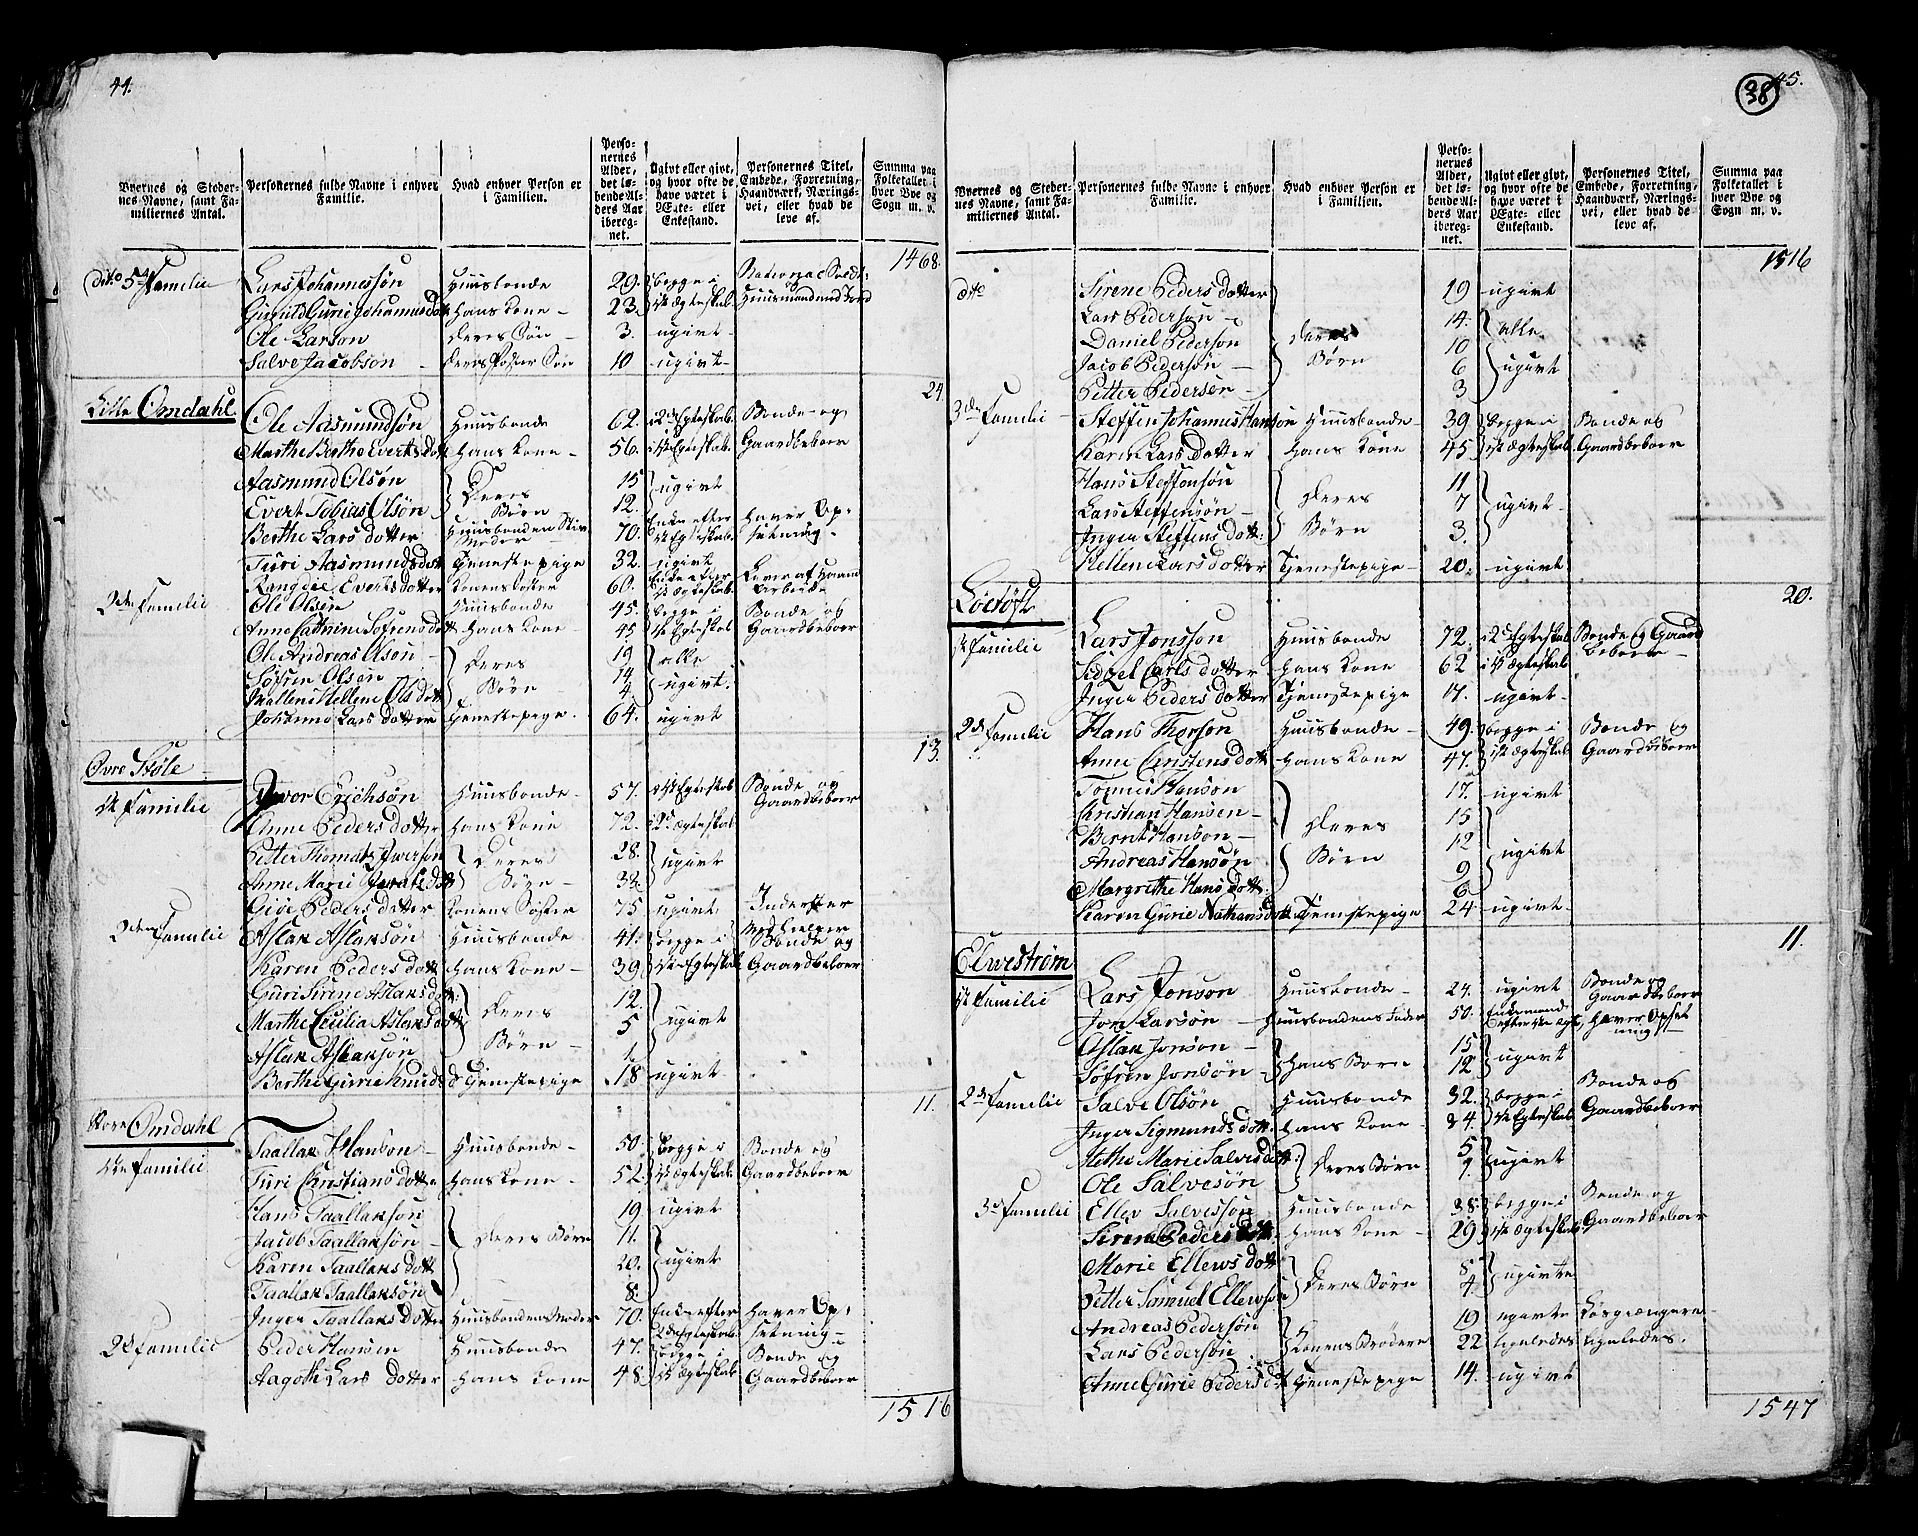 44.
Byernes og Stedernes Navne, samt Familiernes Antal.
Personernes fulde Navne i enhver Familie.
Hvad enhver Person er i Familien.
Personernes Alder, det løbende Alders Aar iberegnet.
Ugivt eller givt, og hvor ofte de have været i Ægte- eller Enkestand.
Personernes Titel, Embede, Forretning, Haandværk, Næringsvei, eller hvad de leve af.
Summa paa Folketallet i hver Bye og Sogn m. v.
1468.
dito 5te Familie Lars Johannessøn Huusbonde 29. begge i National Sold:
Gunild Gurie Johannesdott hans Kone - 23. 1st Ægteskab Huusmand med Jord
Ole Larsøn deres Søn - 3. ugivt -
Salve Jacobsøn - deres Foster Søn 10 ugivt -
24.
Lille Omdahl. Ole Aasmundsøn Huusbonde 62. i 2det Egteskab Bonde og
Marthe Berthe Evertsdott hans Kone - 56. i 1st Egteskab. Gaardbeboer
Aasmund Olsøn Deres 15 ugivt
Evert Tobias Olsøn Børn 12.
Berthe Lars dotter Huusbondens Stiv Moder 70. Enke efter 1st Egteskab. haver Opsetning.
Turi Aasmundsdott Tjenestepige 32. ugivt
Rangdie Everts dotter Konens Søster 60. Enke efter 1st Egteskab Lever af Haand Arbeide
2den Familie Ole Olsen Huusbonde 45. begge i Bonde og
Anne Cathrine Sofrens dott hans Kone - 45 1st Egteskab Gaardbeboer
Ole Andreas Olsøn - deres 19 alle
Søfren Olsøn Børn - 14 ugivt.
Mallene Hellene Ols dott 4.
Johanne Lars dotter Tjenestepige. 64. ugivt
13.
Øvre Støle
1st Familie Iwer Erichsøn Huusbonde - 57. i 1st Egteskab Bonde og Gaardbeboer
Anne Peders dotter hans Kone 72. i 2d Ægteskab
Petter Thomas Iwersøn Deres 28. ugivt
Anne Marie Iversdott Børn - 32.
Giøe Peders dotter Konens Søster 75 ugivt Inderster
2den Familie Aslak Aslaksøn Huusbonde 41. begge i Bonde og
Karen Peders dott hans Kone - 39 1st Egteskab Gaardbeboer
Guri Sirene Aslaks dott: deres 12. ugivt
Marthe Cecilia Aslaks dott Børn - 5
Aslak Aslaksøn 1.
Berthe Gurie Knuds d Tjenestepige 18 ugivt
11.
Store Omdahl
1ste Familie Taallak Hansøn - Huusbonde - 50. begge i Bonde og
Turi Christians dotter hans Kone - 52. 1st Ægteskab Gaardbeboer
Hans Taallaksøn deres Børn 19 ugivt
Jacob Taallaksøn - 11. ugivt
Karen Taallaks dott 20.
Taallak Taallaksøn 8.
Inger Taallaks dotter Huusbondens Moder 70. Enke efter 2det Ægteskab haver Opsetning -
2d Familie Peder Hansen Huusbonde 47. begge i Bonde og
Aagoth Lars dotter hans Kone 48. 1st Ægteskab Gaardbeboer
1516
38
45.
Byernes og Stedernes Navne, samt Familiernes Antal.
Personernes fulde Navne i enhver Familie.
Hvad enhver Person er i Familien.
Personernes Alder, det løbende Alders Aar iberegnet.
Ugivt eller givt, og hvor ofte de have været i Ægte- eller Enkestand.
Personernes Titel, Embede, Forretning, Haandværk, Næringsvei, eller hvad de leve af.
Summa paa Folketallet i hver Bye og Sogn m. v.
1516
dito Sirene Peders dotter 19 ugivt
Lars Pedersøn - deres 14. alle
Daniel Pedersøn Børn 10
Jacob Pedersøn - 6 ugivt
Petter Pedersen - 3
3de Familie Steffen Johannes Hansøn Huusbonde - 39 begge i Bonde og
Karen Lars dotter hans Kone 45 1st Ægteskab Gaardbeboer
Hans Steffensøn deres 11
Lars Steffensøn - Børn 7 ugivt -
Inger Steffens dott: 3.
Hellene Lars dotter Tjenestepige - 20. ugivt
20.
1st Familie Lars Jonssøn Huusbonde 72. i 2d Egteskab Bonde og Gaard beboer -
Sidzel Carls dotter hans Kone 62 i 1st Ægteskab
Inger Peders dotter Tjenestepige 17. ugivt -
2d Familie Hans Thorsøn Huusbonde - 49. begge i Bonde og
Anne Cerstens dott hans Kone 47. 1st Ægteskab Gaardbeboer
Tomine Hansøn deres 17. ugivt
Christian Hansen - Børn 15
Bernt Hansøn - 12 ugivt
Andreas Hansøn 9
Margrethe Hans dott: 6
Karen Gurie Nathans dott Tjenestepige 24 ugivt -
11.
Elwestrøm
1st Familie Lars Jonsøn Huusbonde - 24. ugivt Bonde og Gaardbeboer
Jon Larsøn - Huusbondens Fader 50. Enkemand efter 1ste Egt. haver Opsetning -
Aslak Jonsøn - hans Børn 15 ugivt
Søfren Jonsøn - 12
2d Familie Salve Olsøn Huusbonde 32. begge i Bonde og
Inger Sigmunds dott. hans Kone - 24. 1st Egteskab Gaardbeboer
Methe Marie Salves dott: deres Børn 5 ugivt
Ole Salvesøn 1
3d Familie Ellev Salvessøn Huusbonde 38. begge i Bonde og
Sirene Peders dott. hans Kone - 29 1st Ægteskab Gaardbeboer
Marie Ellews dott deres Børn 8 ugivte
Petter Samuel Ellewsøn 4.
Andreas Pedersøn Konens Brødere 19 ugivte Løsgængere -
Lars Pedersøn 22 ligeledes ligeledes.
Anne Gurie Peders d: Tjenestepige 14. ugivt
1547